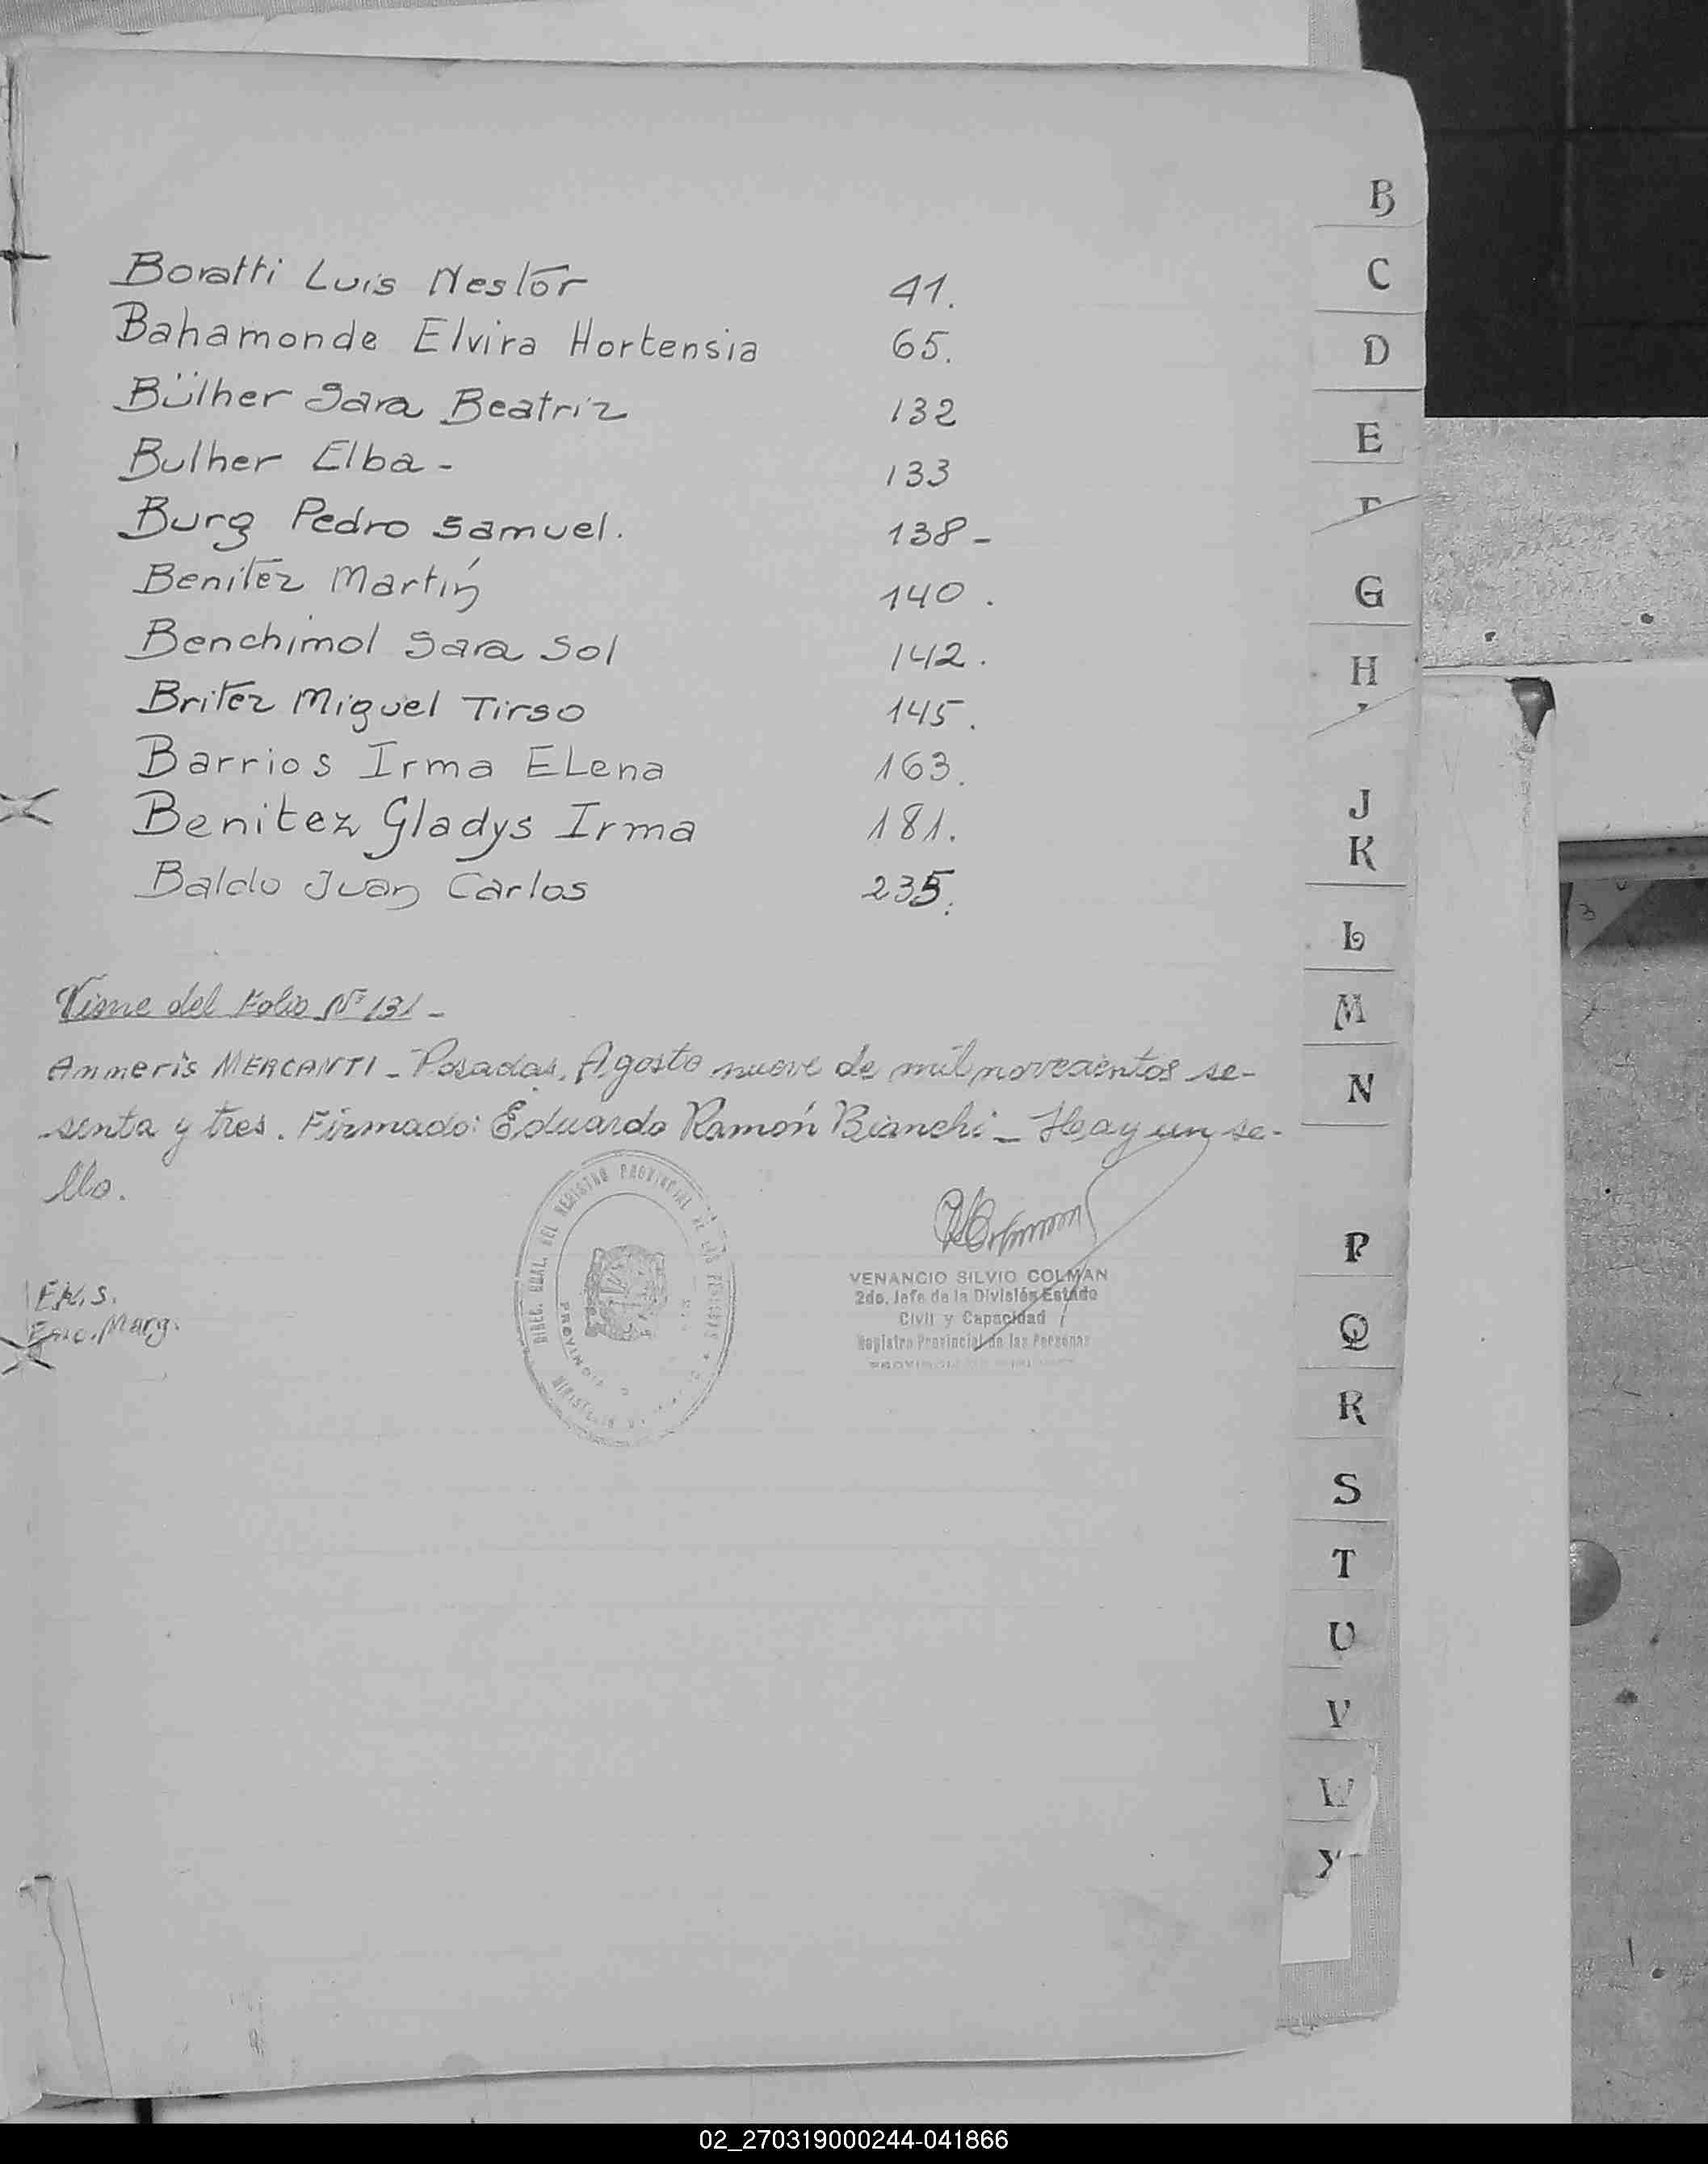 Boratti Luis Nestor 41.
Bahamonde Elvira Hortensia 65.
Bülher Sara Beatriz 132
Bulher Elba - 133
Burg Pedro Samuel. 138 -
Benitez Martín 140.
Benchimol Sara Sol 142.
Britez Miguel Tirso 145.
Barrios Irma ELena 163.
Benitez Gladys Irma 181.
Baldo Juan Carlos 235.
Viene del Folio Nº 131 -
Anneris MERCANTI - Posadas, Agosto nueve de mil novecientos se-
senta y tres. Firmado: Eduardo Ramón Bianchi - Hay un se-
llo.
DIREC. GRAL. DEL REGISTRO PROVINCIAL DE LAS PERSONAS
PROVINCIA
VENANCIO SILVIO COLMAN
2do. Jefe de la División Estado
Civil y Capacidad
Registro Provincial de las Personas
Marg.
B
C
D
E
F
G
H
J
K
L
M
N
P
Q
R
S
T
U
V
W
Y
3
02_270319000244-041866